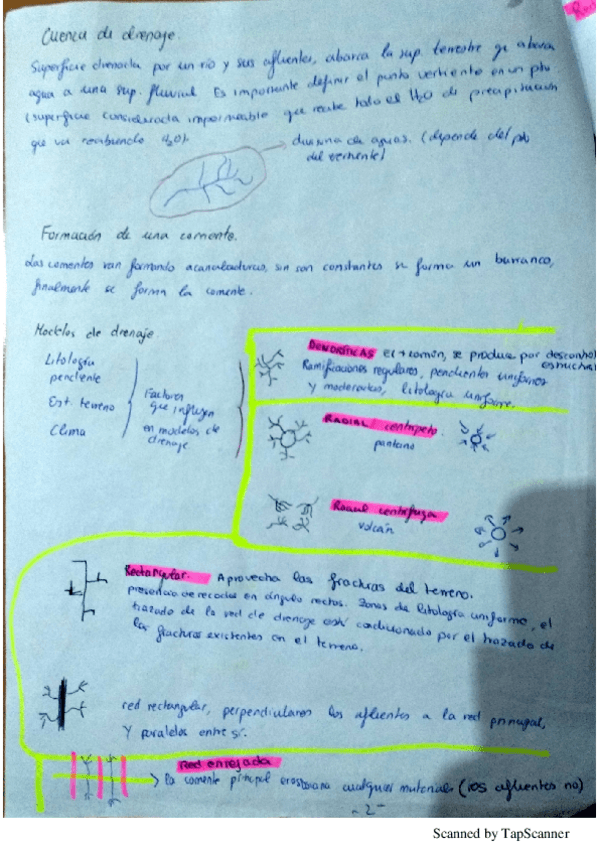 Cuenca de drenaje.
Superficie drenada por un río y sus afluentes, abarca la sup. terrestre q aboca
agua a una sup. fluvial. Es importante definir el punto vertiente en un pto
(superficie considerada impermeable que recibe todo el H2O de precipitación
que va recibiendo H2O).
divisoria de aguas. (depende del pto
del vertiente)
Formación de una corriente.
Las corrientes van formando acanaladuras, sin son constantes se forma un barranco,
finalmente se forma la corriente.
Modelos de drenaje
Litología
pendiente
Est. terreno
Clima
Factores
que influyen
en modelos de
drenaje
DENDRÍTICAS El + común, se produce por
Ramificaciones regulares, pendientes uniformes
y moderadas, litología uniforme.
RADIAL centrípeto
pantano
Radial centrífuga
volcán
Rectangular. Aprovecha las fracturas del terreno.
presencia de recodos en ángulo rectos. Zonas de litología uniforme, el
trazado de la red de drenaje está condicionado por el trazado de
las fracturas existentes en el terreno.
red rectangular, perpendiculares los afluentes a la red principal,
y paralelos entre sí.
Red enrejada
la corriente principal erosionana cualquier material (los afluentes no)
-2-
Scanned by TapScanner